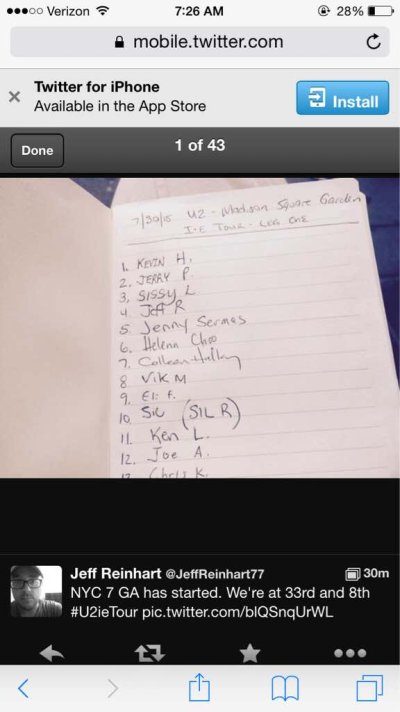 Verizon 7:26 AM 28%
mobile.twitter.com
Twitter for iPhone
Available in the App Store
Install
Done
1 of 43
7/30/15 U2 - Madison Square Garden
I+E TOUR - LEG ONE
1. KEVIN H.
2. JERRY P.
3, SISSY L
4. Jeff R
5. Jenny Sermas
6. Helena Choo
7. Colleen
8 VIK M
9. Eli F.
10 Sil (SIL R)
11. Ken L.
12. Joe A.
13 Chris K.
Jeff Reinhart @JeffReinhart77 30m
NYC 7 GA has started. We're at 33rd and 8th
#U2ieTour pic.twitter.com/blQSnqUrWL